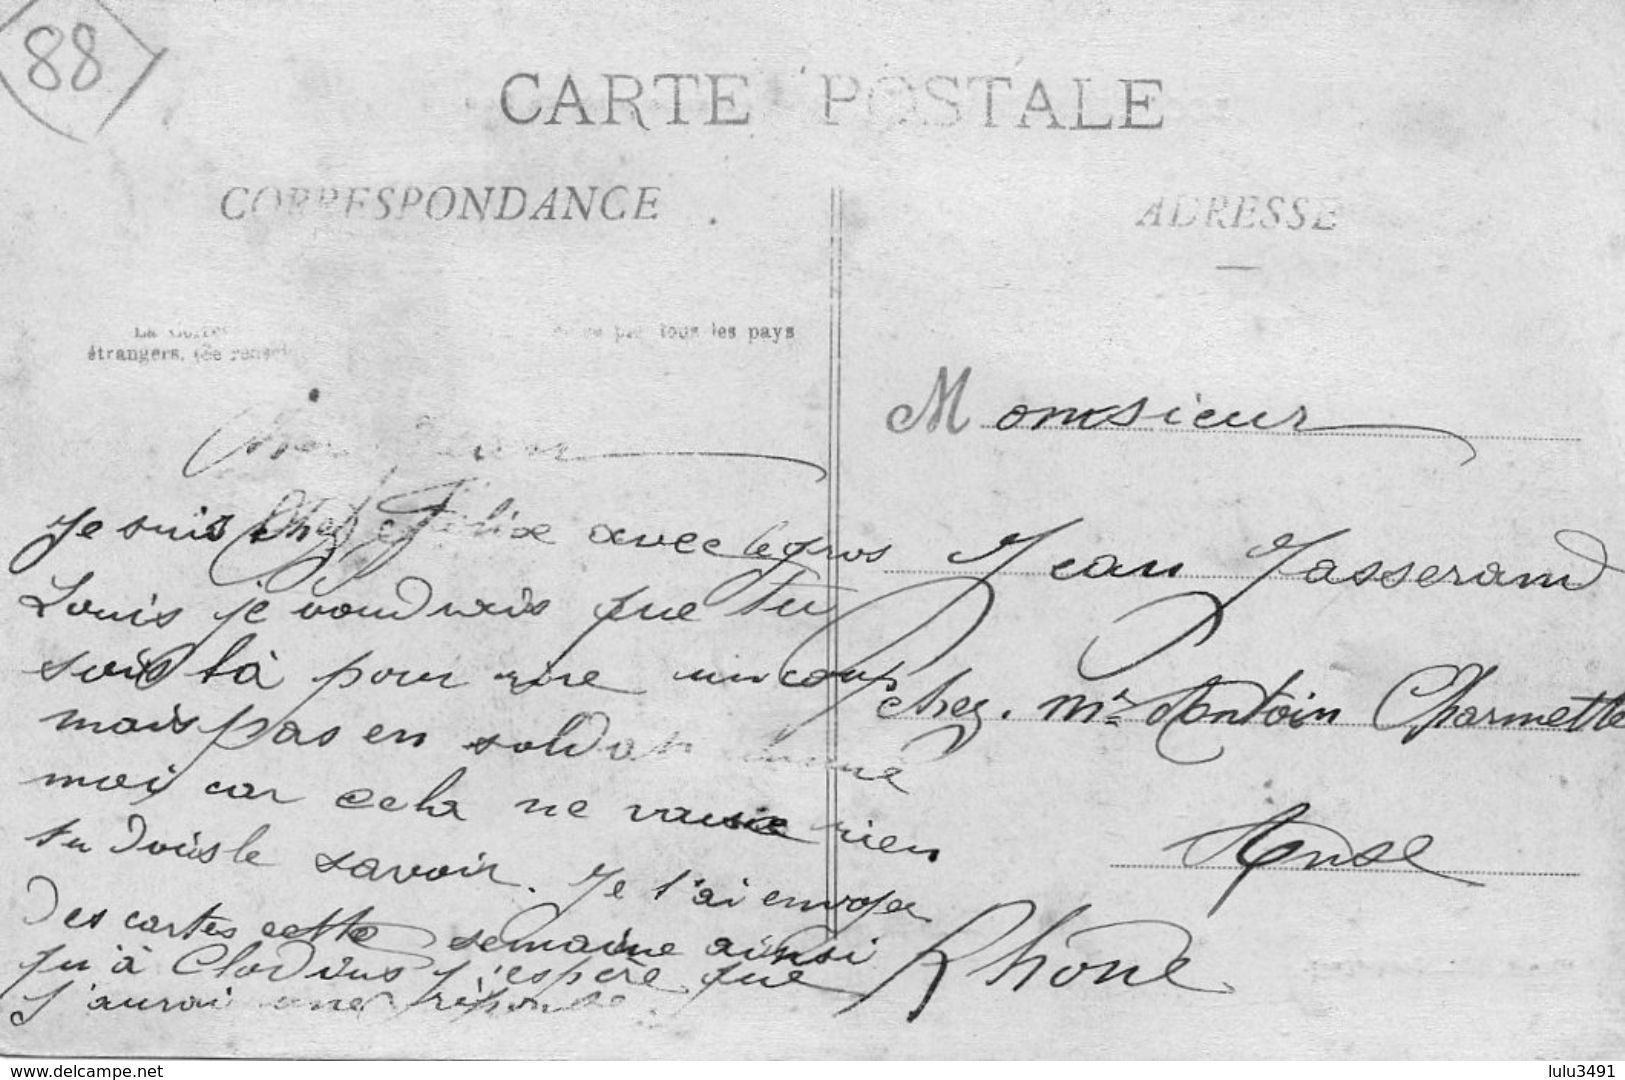 88
CARTE POSTALE
CORRESPONDANCE
ADRESSE
par tous les pays
étrangers. (Se
Cher Jean
Je suis chez Félix avec le gros
Louis je voudrais que tu
sois là pour rire un coup
mais pas en soldat comme
moi car cela ne vause rien
tu dois le savoir. Je t'ai envoyer
des cartes cette semaine ainsi
qu'à Clodius j'espère que
J'aurai une réponse.
Monsieur
Jean Jasserand
chez. Mr Antoin Charmette
Anse
Rhône
www.delcampe.net
lulu3491